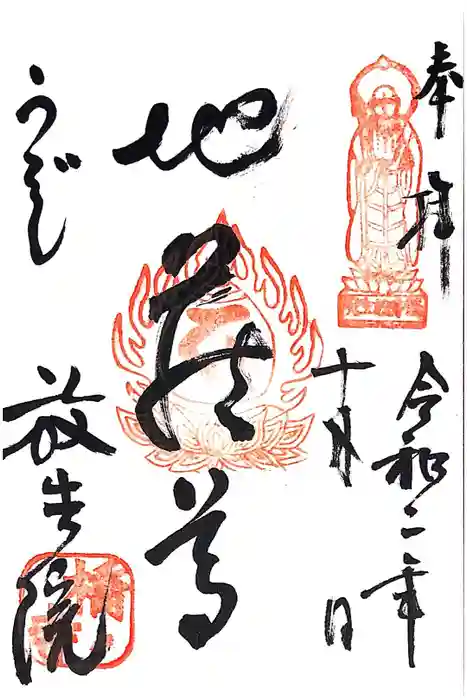 奉拝
令和二年
十月 日
地蔵尊
放生院